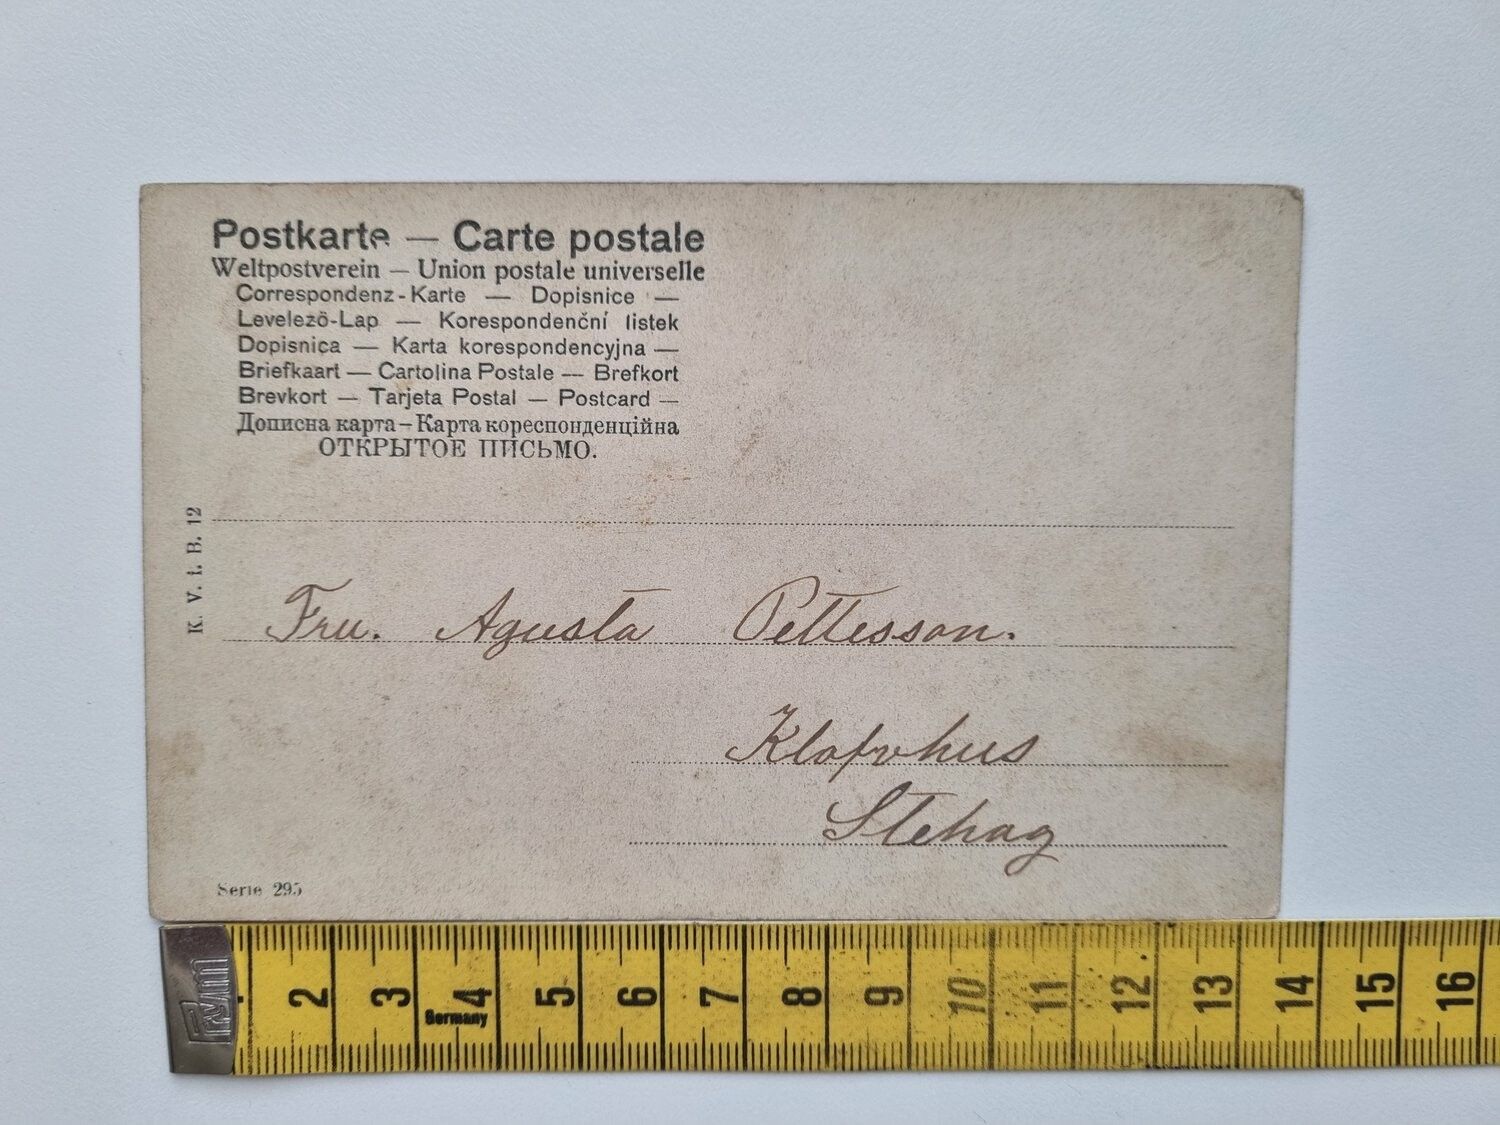 Postkarte — Carte postale
Weltpostverein — Union postale universelle
Correspondenz-Karte — Dopisnice —
Levelezö-Lap — Korespondenční listek
Dopisnica — Karta korespondencyjna —
Briefkaart — Cartolina Postale — Brefkort
Brevkort — Tarjeta Postal — Postcard —
Дописна карта — Карта кореспонденційна
ОТКРЫТОЕ ПИСЬМО.
K. V. i. B. 12
Fru. Agusta Pettesson.
Stehag
Serie 295
Prym
2 3 4 5 6 7 8 9 10 11 12 13 14 15 16
Germany